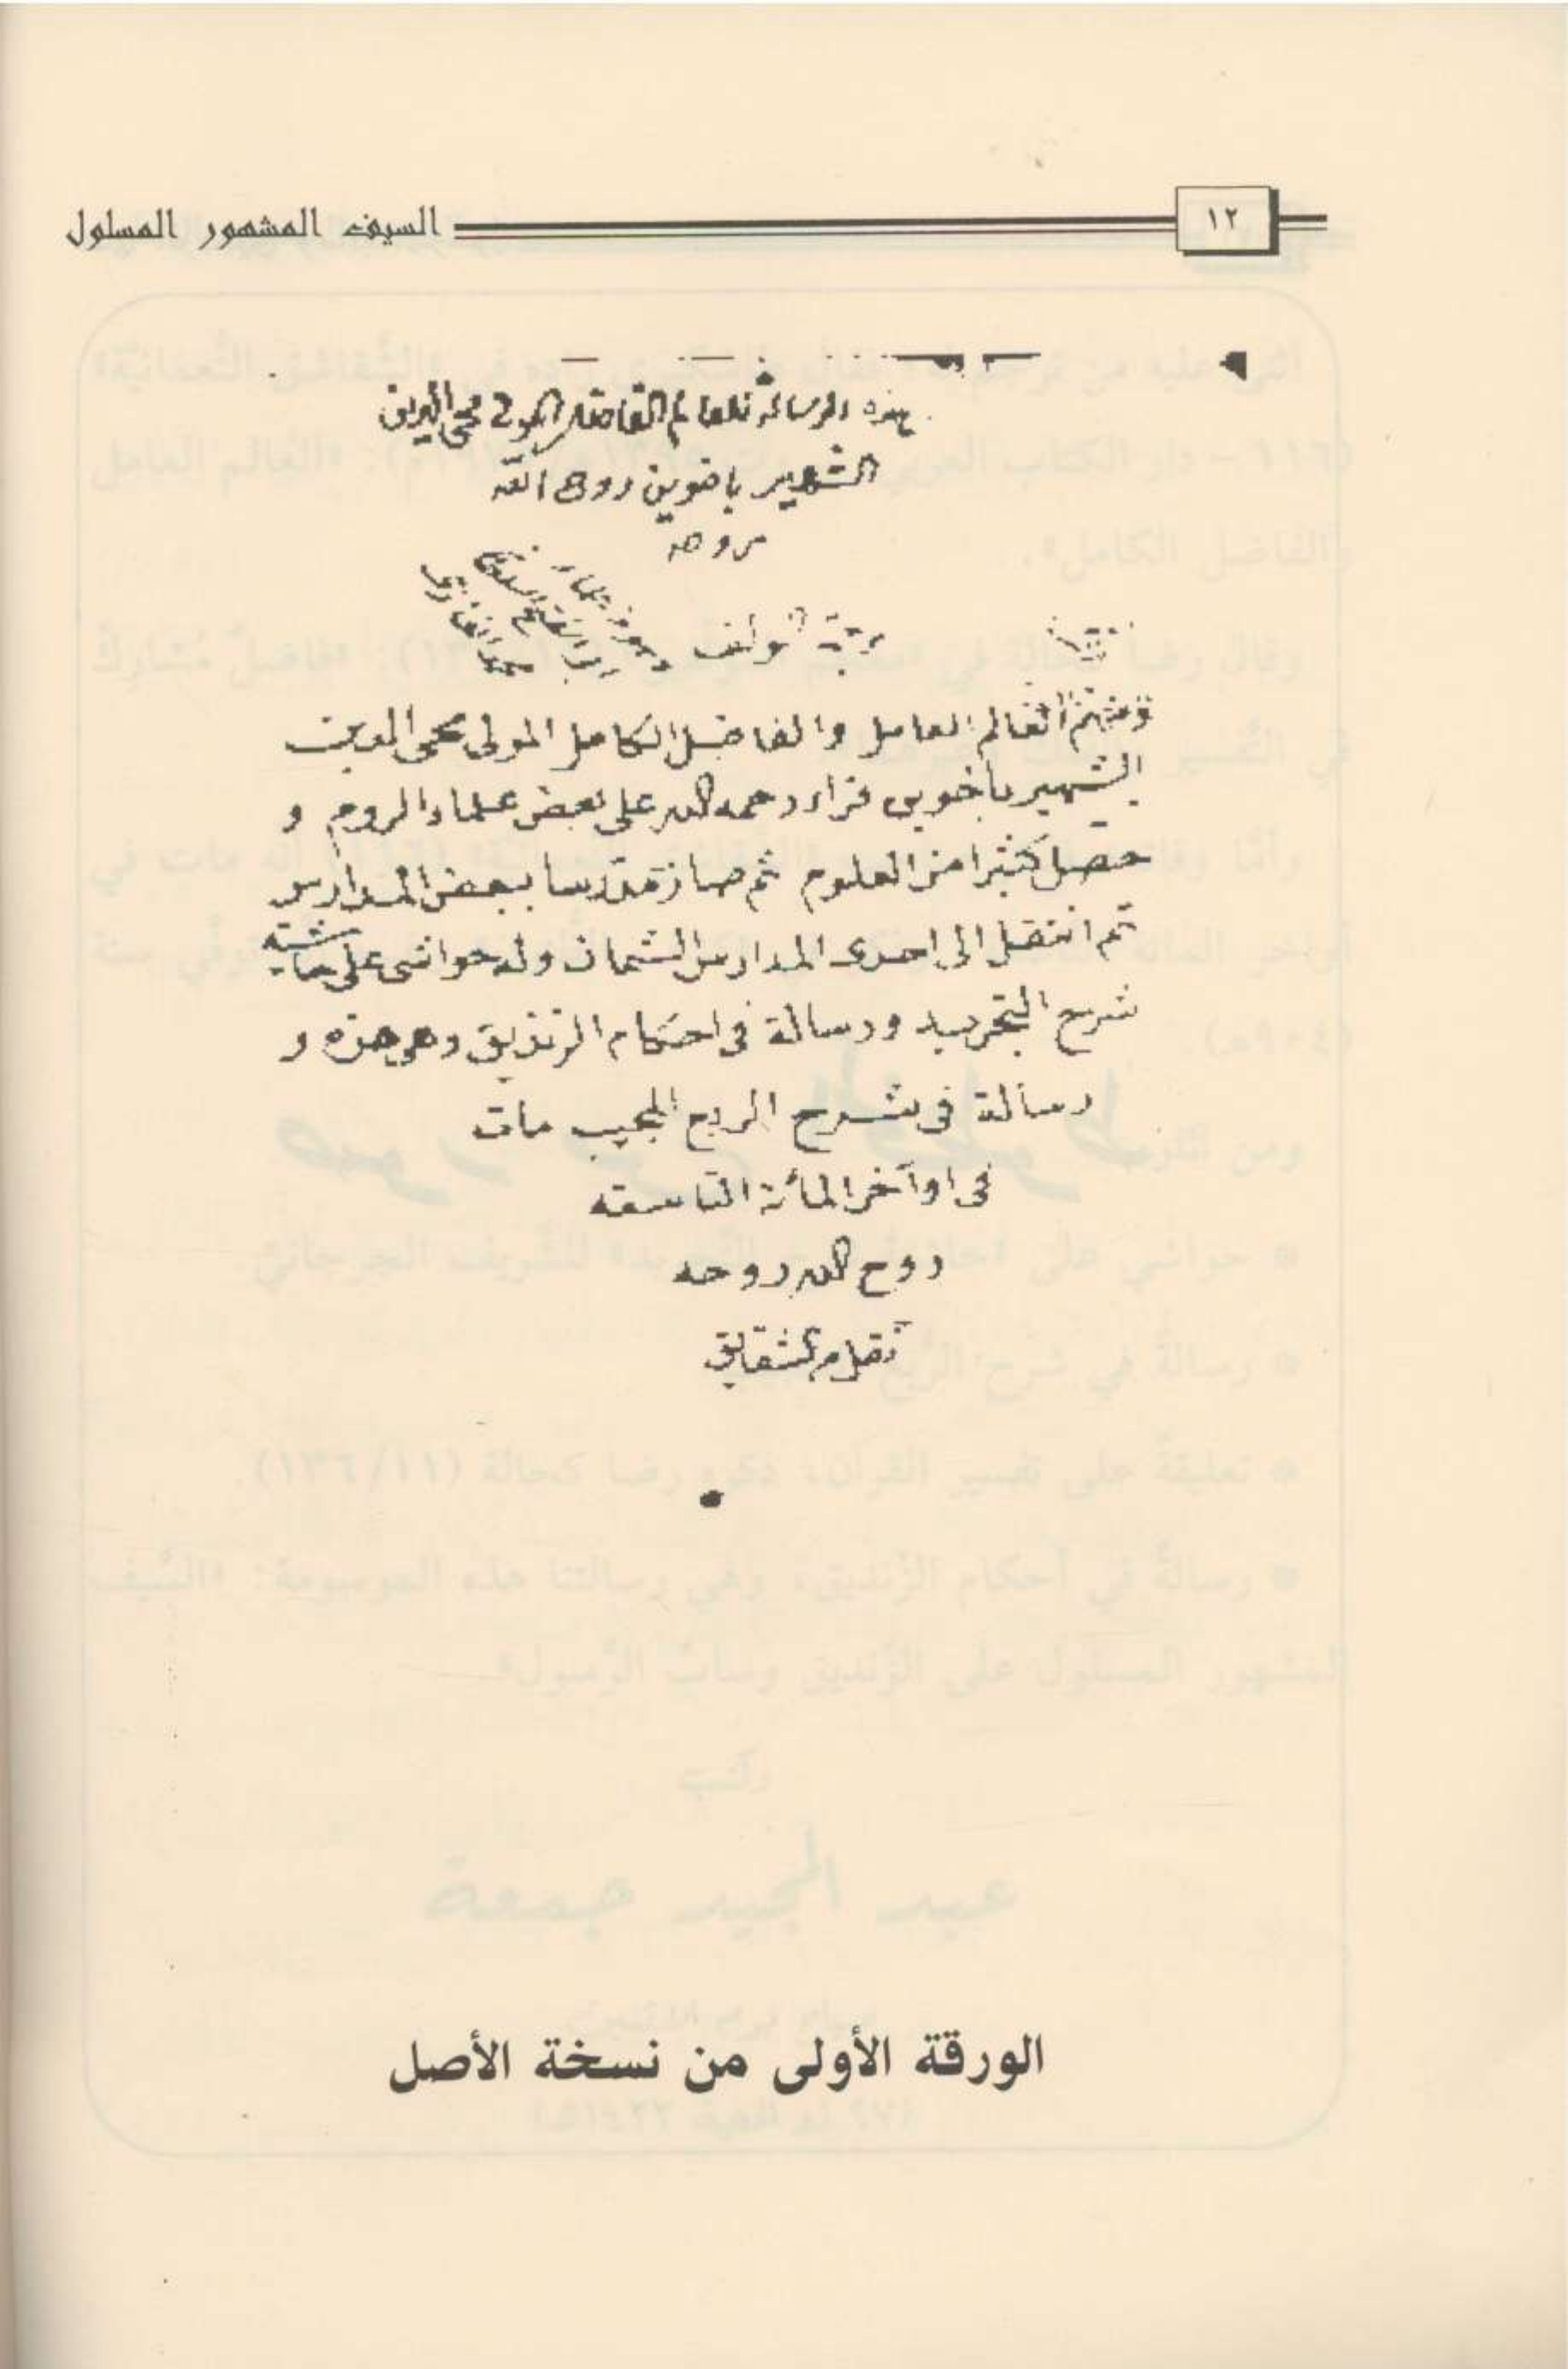 ١٢
السيف المشهور المسلول
هذه الرسالة للعالم الفاضل المولى محيى الدين
الشهير باخوين روح الله
روحه
ومنهم العالم العامل والفاضل الكامل المولى محيى الدين
الشهير باخوين قراء رحمه الله على بعض علماء الروم و
حصل كثيرا من العلوم ثم صار مدرسا ببعض المدارس
ثم انتقل الى احدى المدارس الثمان وله حواشى على حاشية
شرح التجريد ورسالة فى احكام الزنديق وهى هذه و
رسالة فى شرح الربع المجيب مات
فى اواخر المائة التاسعة
روح الله روحه
نقل من الشقايق
الورقة الأولى من نسخة الأصل